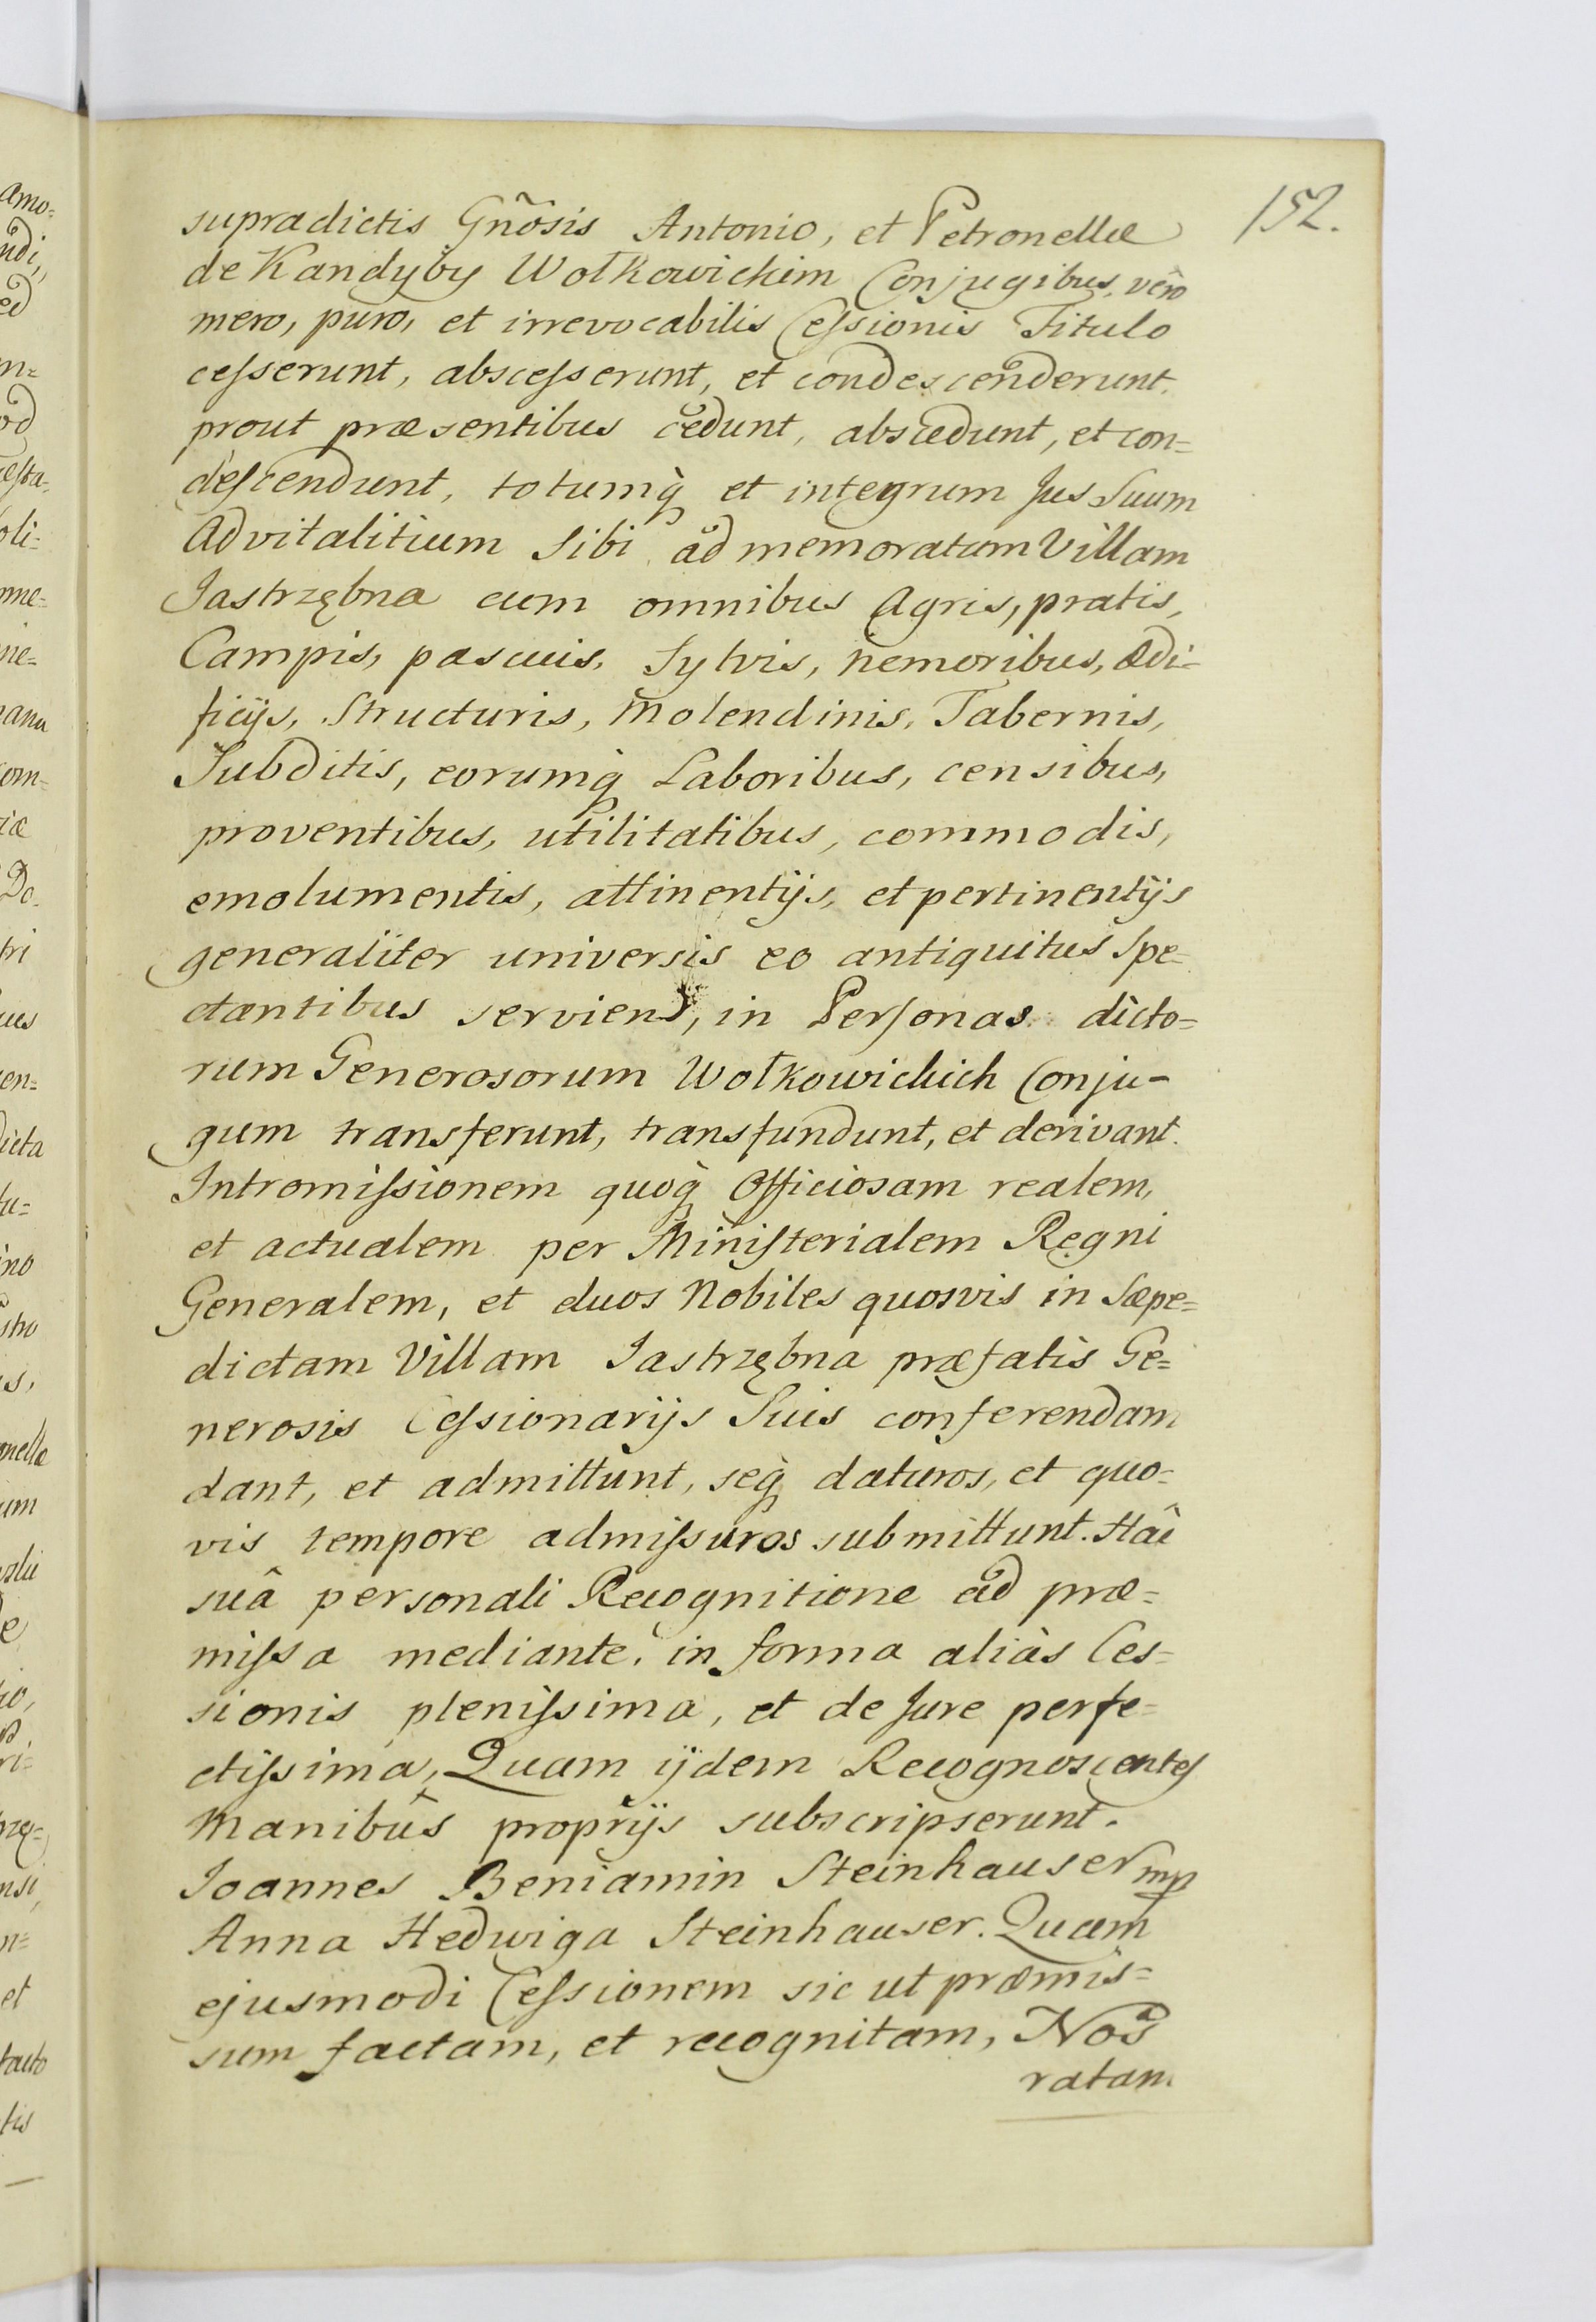 152.
supradictis Gñosis Antonio, et Petronellæ
de Kandyby Wołkowickim Conjugibus, vero
mero, puro, et irrevocabilis Cessionis Titulo
cesserunt, abscesserunt, et condescenderunt.
prout præsentibus cedunt, abscedunt, et con=
descendunt, totumq̀ et integrum Jus Suum
Advitalitium Sibi ad memoratam Villam
Jastrzębna cum omnibus Agris, pratis,
Campis, pascuis, Sylvis, nemoribus, Ædi=
ficijs, Structuris, Molendinis, Tabernis,
Subditis, eorumq̀ Laboribus, censibus,
proventibus, utilitatibus, commodis,
emolumentis, attinentijs, et pertinentijs
generaliter universis eo antiquitus Spe=
ctantibus serviens, in Personas dicto=
rum Generosorum Wołkowickich Conju=
gum transferunt, transfundunt, et derivant.
Intromissionem quoq̀ Officiosam realem,
et actualem per Ministerialem Regni
Generalem, et duos Nobiles quosvis in Sæpe=
dictam Villam Jastrzębna præfatis Ge=
nerosis Cessionarijs Suis conferendam
dant, et admittunt, seq̀ daturos, et quo=
vis tempore admissuros submittunt. Hac
suâ personali Recognitione ad præ=
missa mediante, in forma aliàs Ces=
sionis plenissima, et de Jure perfe=
ctissima, Quam ijdem Recognoscentes
Manibus proprijs subscripserunt.
Joannes Beniamin Steinhauser mp
Anna Hedwiga Steinhauser. Quam
ejusmodi Cessionem sic ut præmis=
sum factam, et recognitam, Nos
ratam